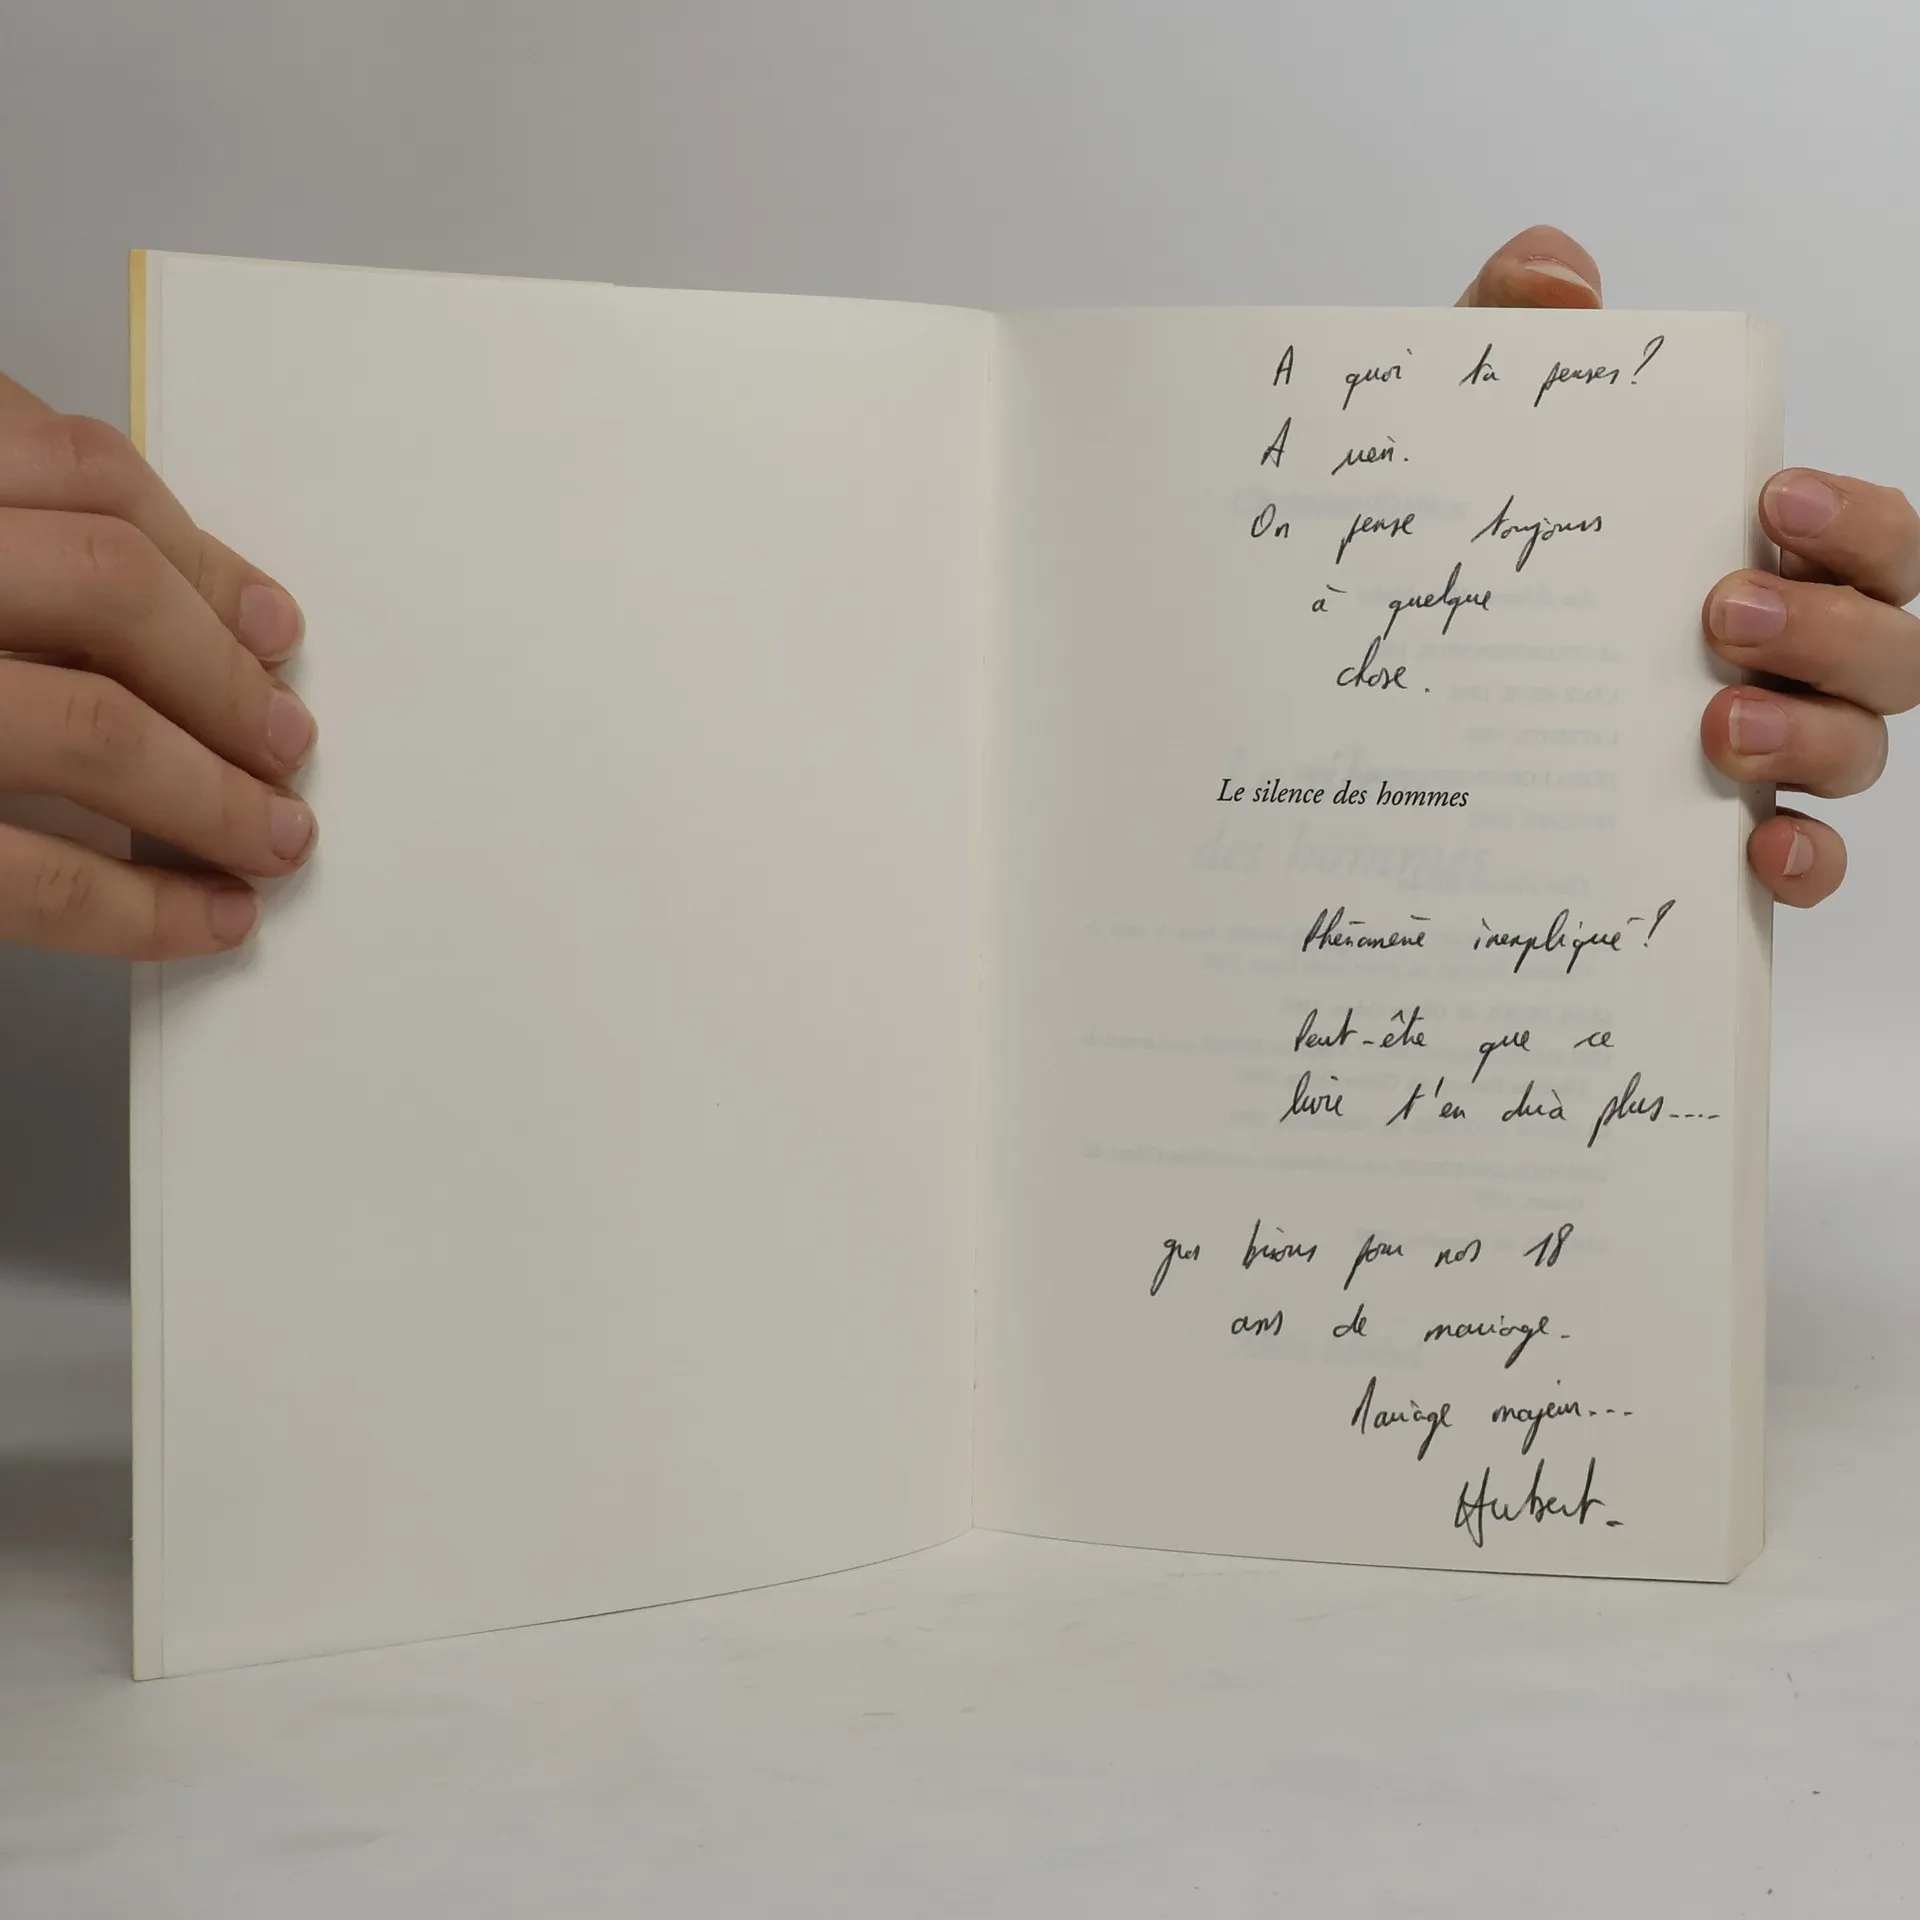 A quoi tu penses?
A rien.
On pense toujours
à quelque
chose.
Le silence des hommes
des hommes
Phénomène inexpliqué!
Peut-être que ce
livre t'en dira plus....
gros bisous pour nos 18
ans de mariage.
Mariage majeur...
Hubert.